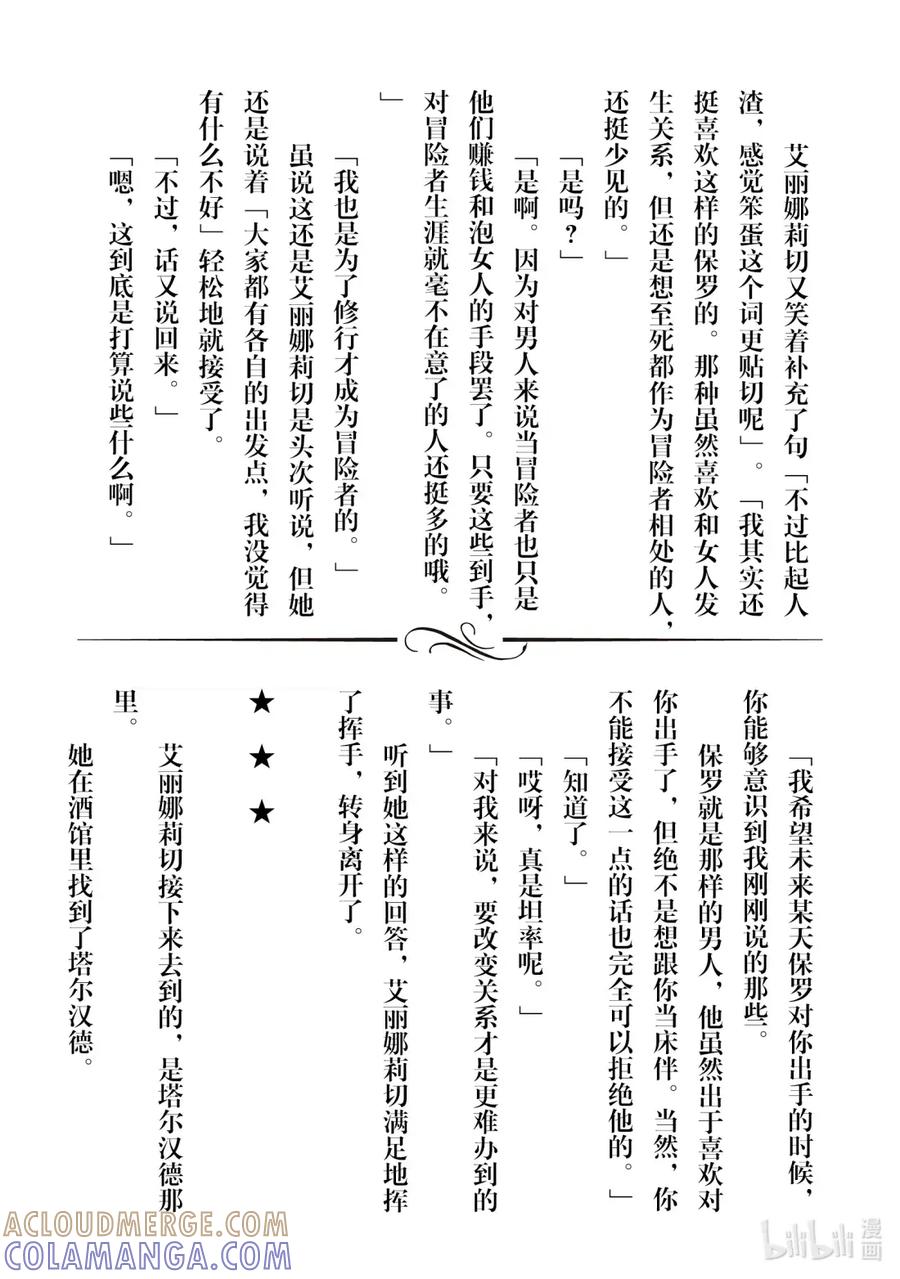 艾丽娜莉切又笑着补充了句「不过比起人
渣，感觉笨蛋这个词更贴切呢」。「我其实还
挺喜欢这样的保罗的。那种虽然喜欢和女人发
生关系，但还是想至死都作为冒险者相处的人，
还挺少见的。」
「是吗?」
「是啊。因为对男人来说当冒险者也只是
他们赚钱和泡女人的手段罢了。只要这些到手，
对冒险者生涯就毫不在意了的人还挺多的哦。
」
「我也是为了修行才成为冒险者的。」
虽说这还是艾丽娜莉切是头次听说，但她
还是说着「大家都有各自的出发点，我没觉得
有什么不好」轻松地就接受了。
「不过，话又说回来。」
「嗯，这到底是打算说些什么啊。」
「我希望未来某天保罗对你出手的时候，
你能够意识到我刚刚说的那些。
保罗就是那样的男人，他虽然出于喜欢对
你出手了，但绝不是想跟你当床伴。当然，你
不能接受这一点的话也完全可以拒绝他的。」
「知道了。」
「哎呀，真是坦率呢。」
「对我来说，要改变关系才是更难办到的
事。」
听到她这样的回答，艾丽娜莉切满足地挥
了挥手，转身离开了。
★ ★ ★
艾丽娜莉切接下来去到的，是塔尔汉德那
里。
她在酒馆里找到了塔尔汉德。
ACLOUDMERGE.COM
COLAMANGA.COM
bilibili 漫画